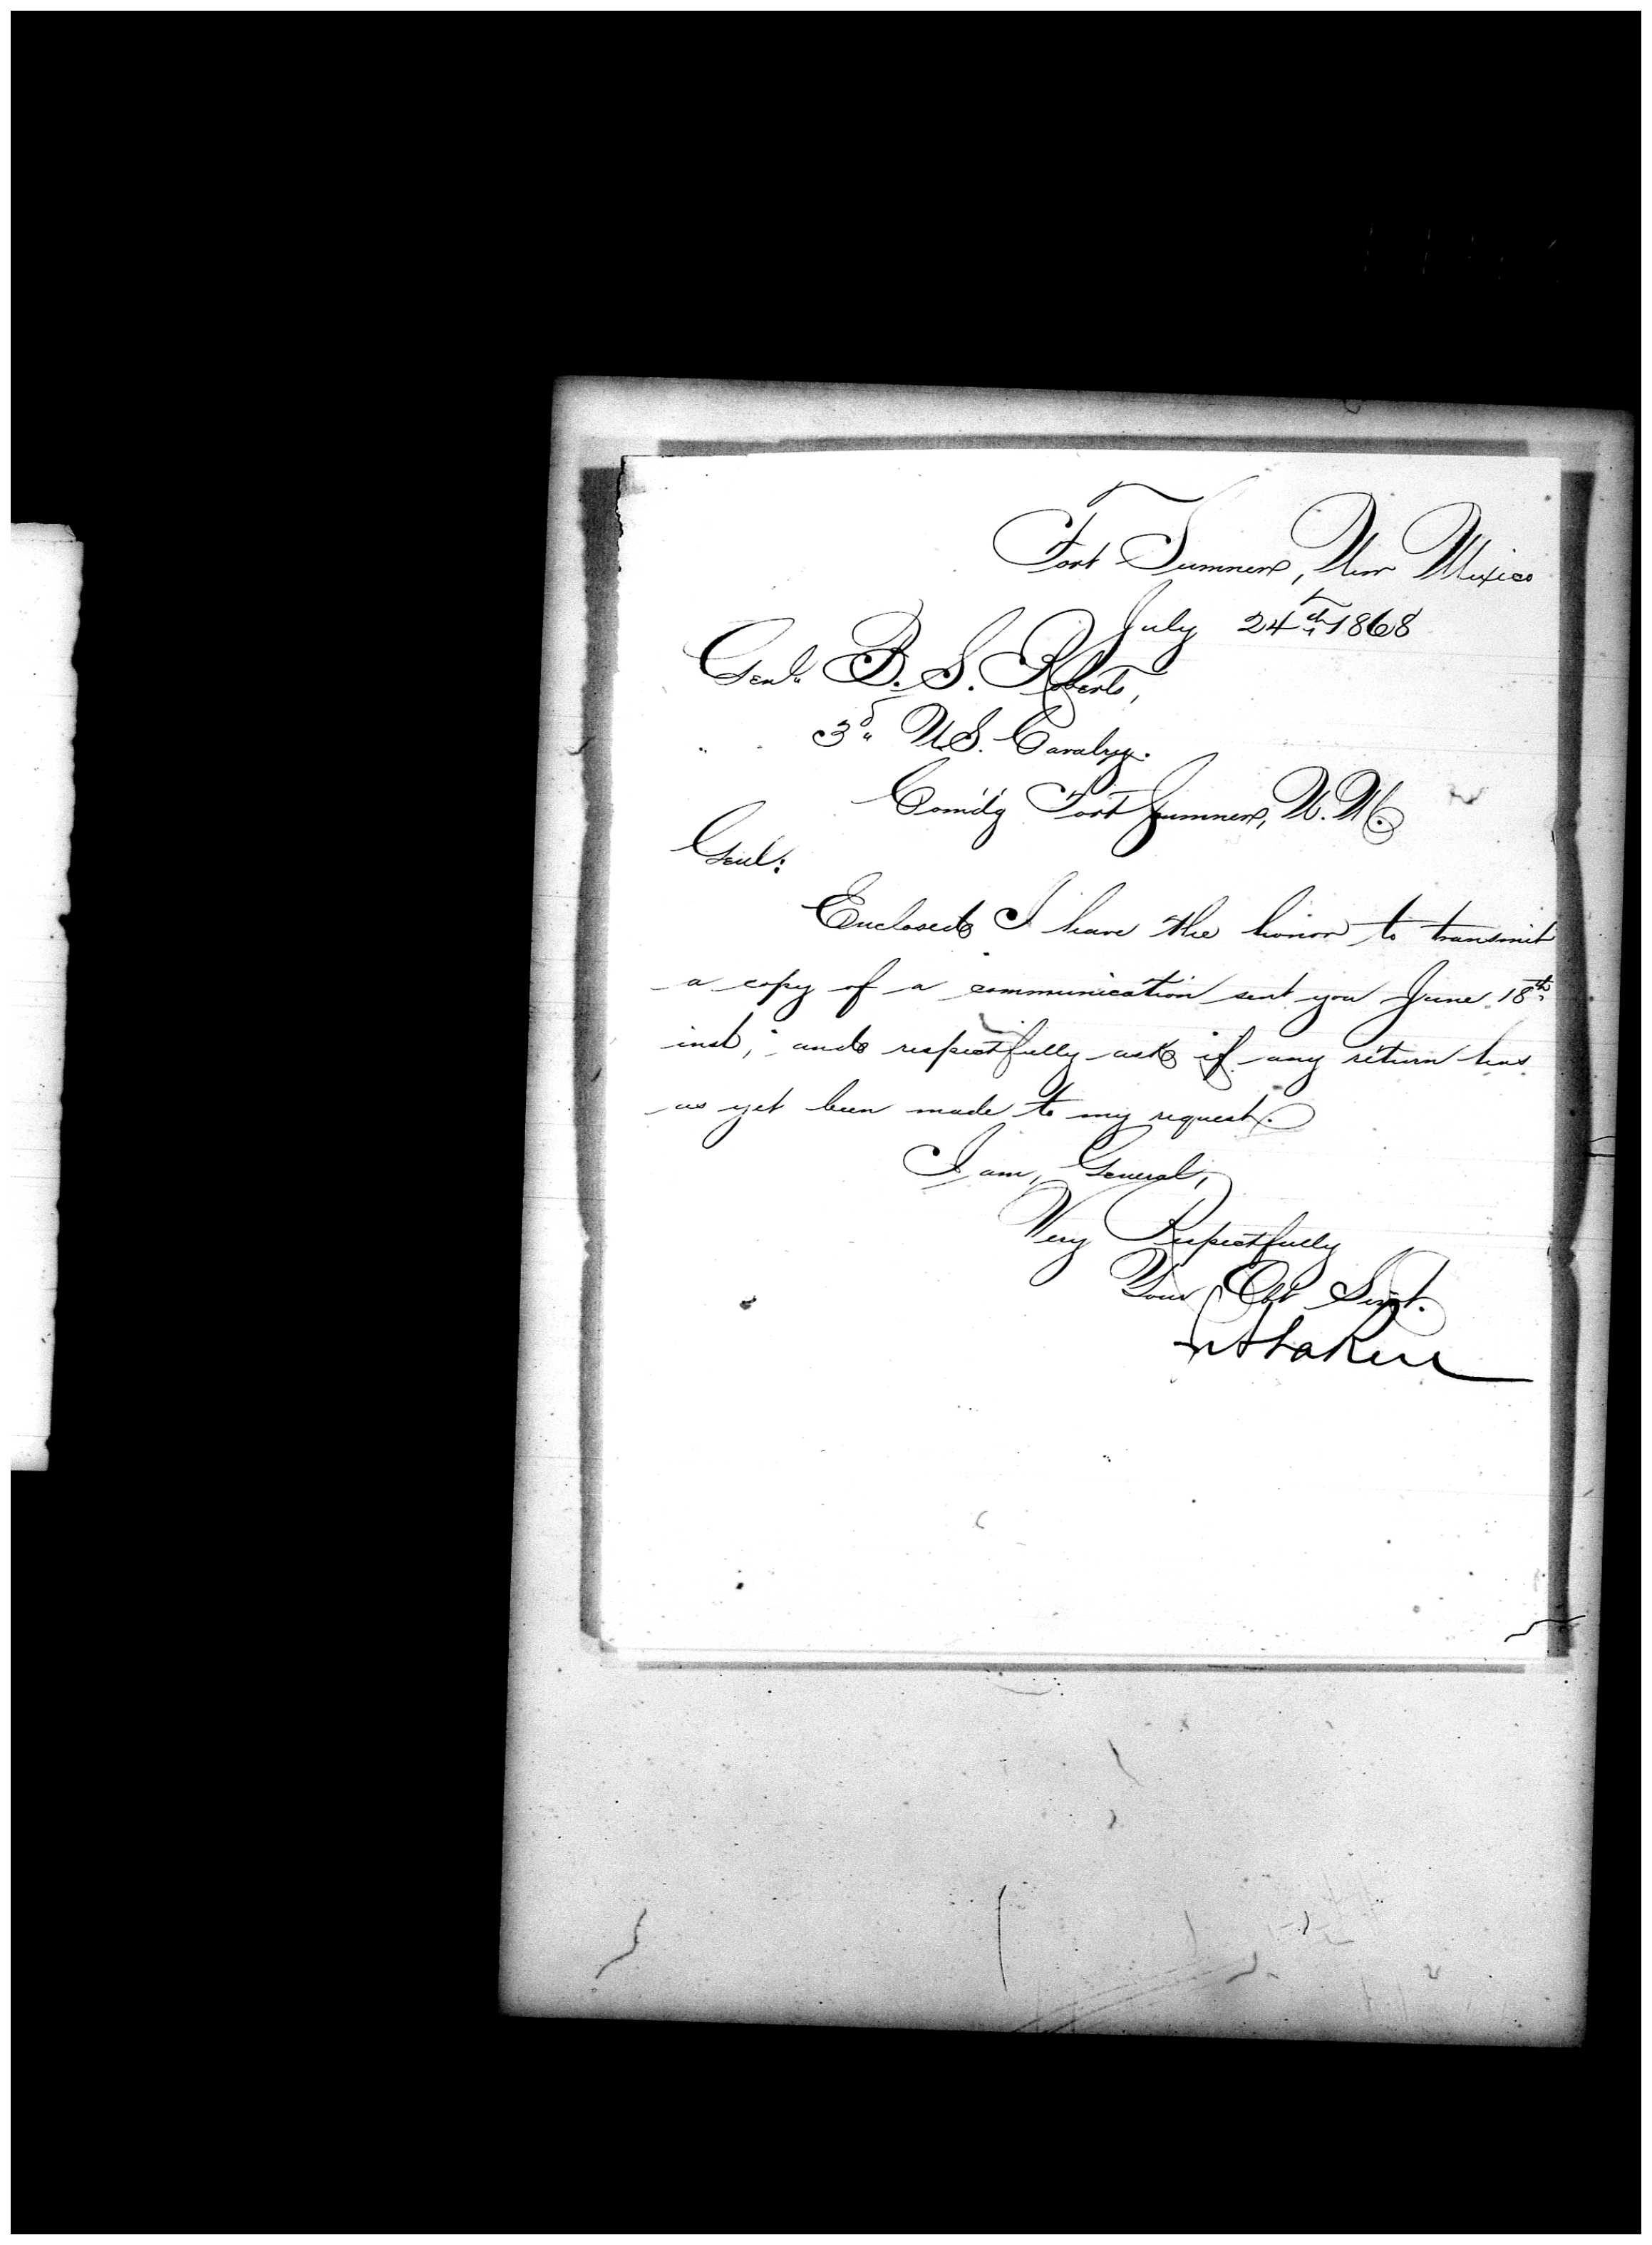 Fort Sumner, New Mexico
July 24th 1868
Genl. B. S. Roberts,
3d U.S. Cavalry.
Comdg Fort Sumner, N. M.
Genl:
Enclosed I have the honor to transmit
a copy of a communication sent you June 18th
inst, and respectfully ask if any return has
as yet been made to my request.
I am, General,
Very Respectfully
Your Obt Servt.